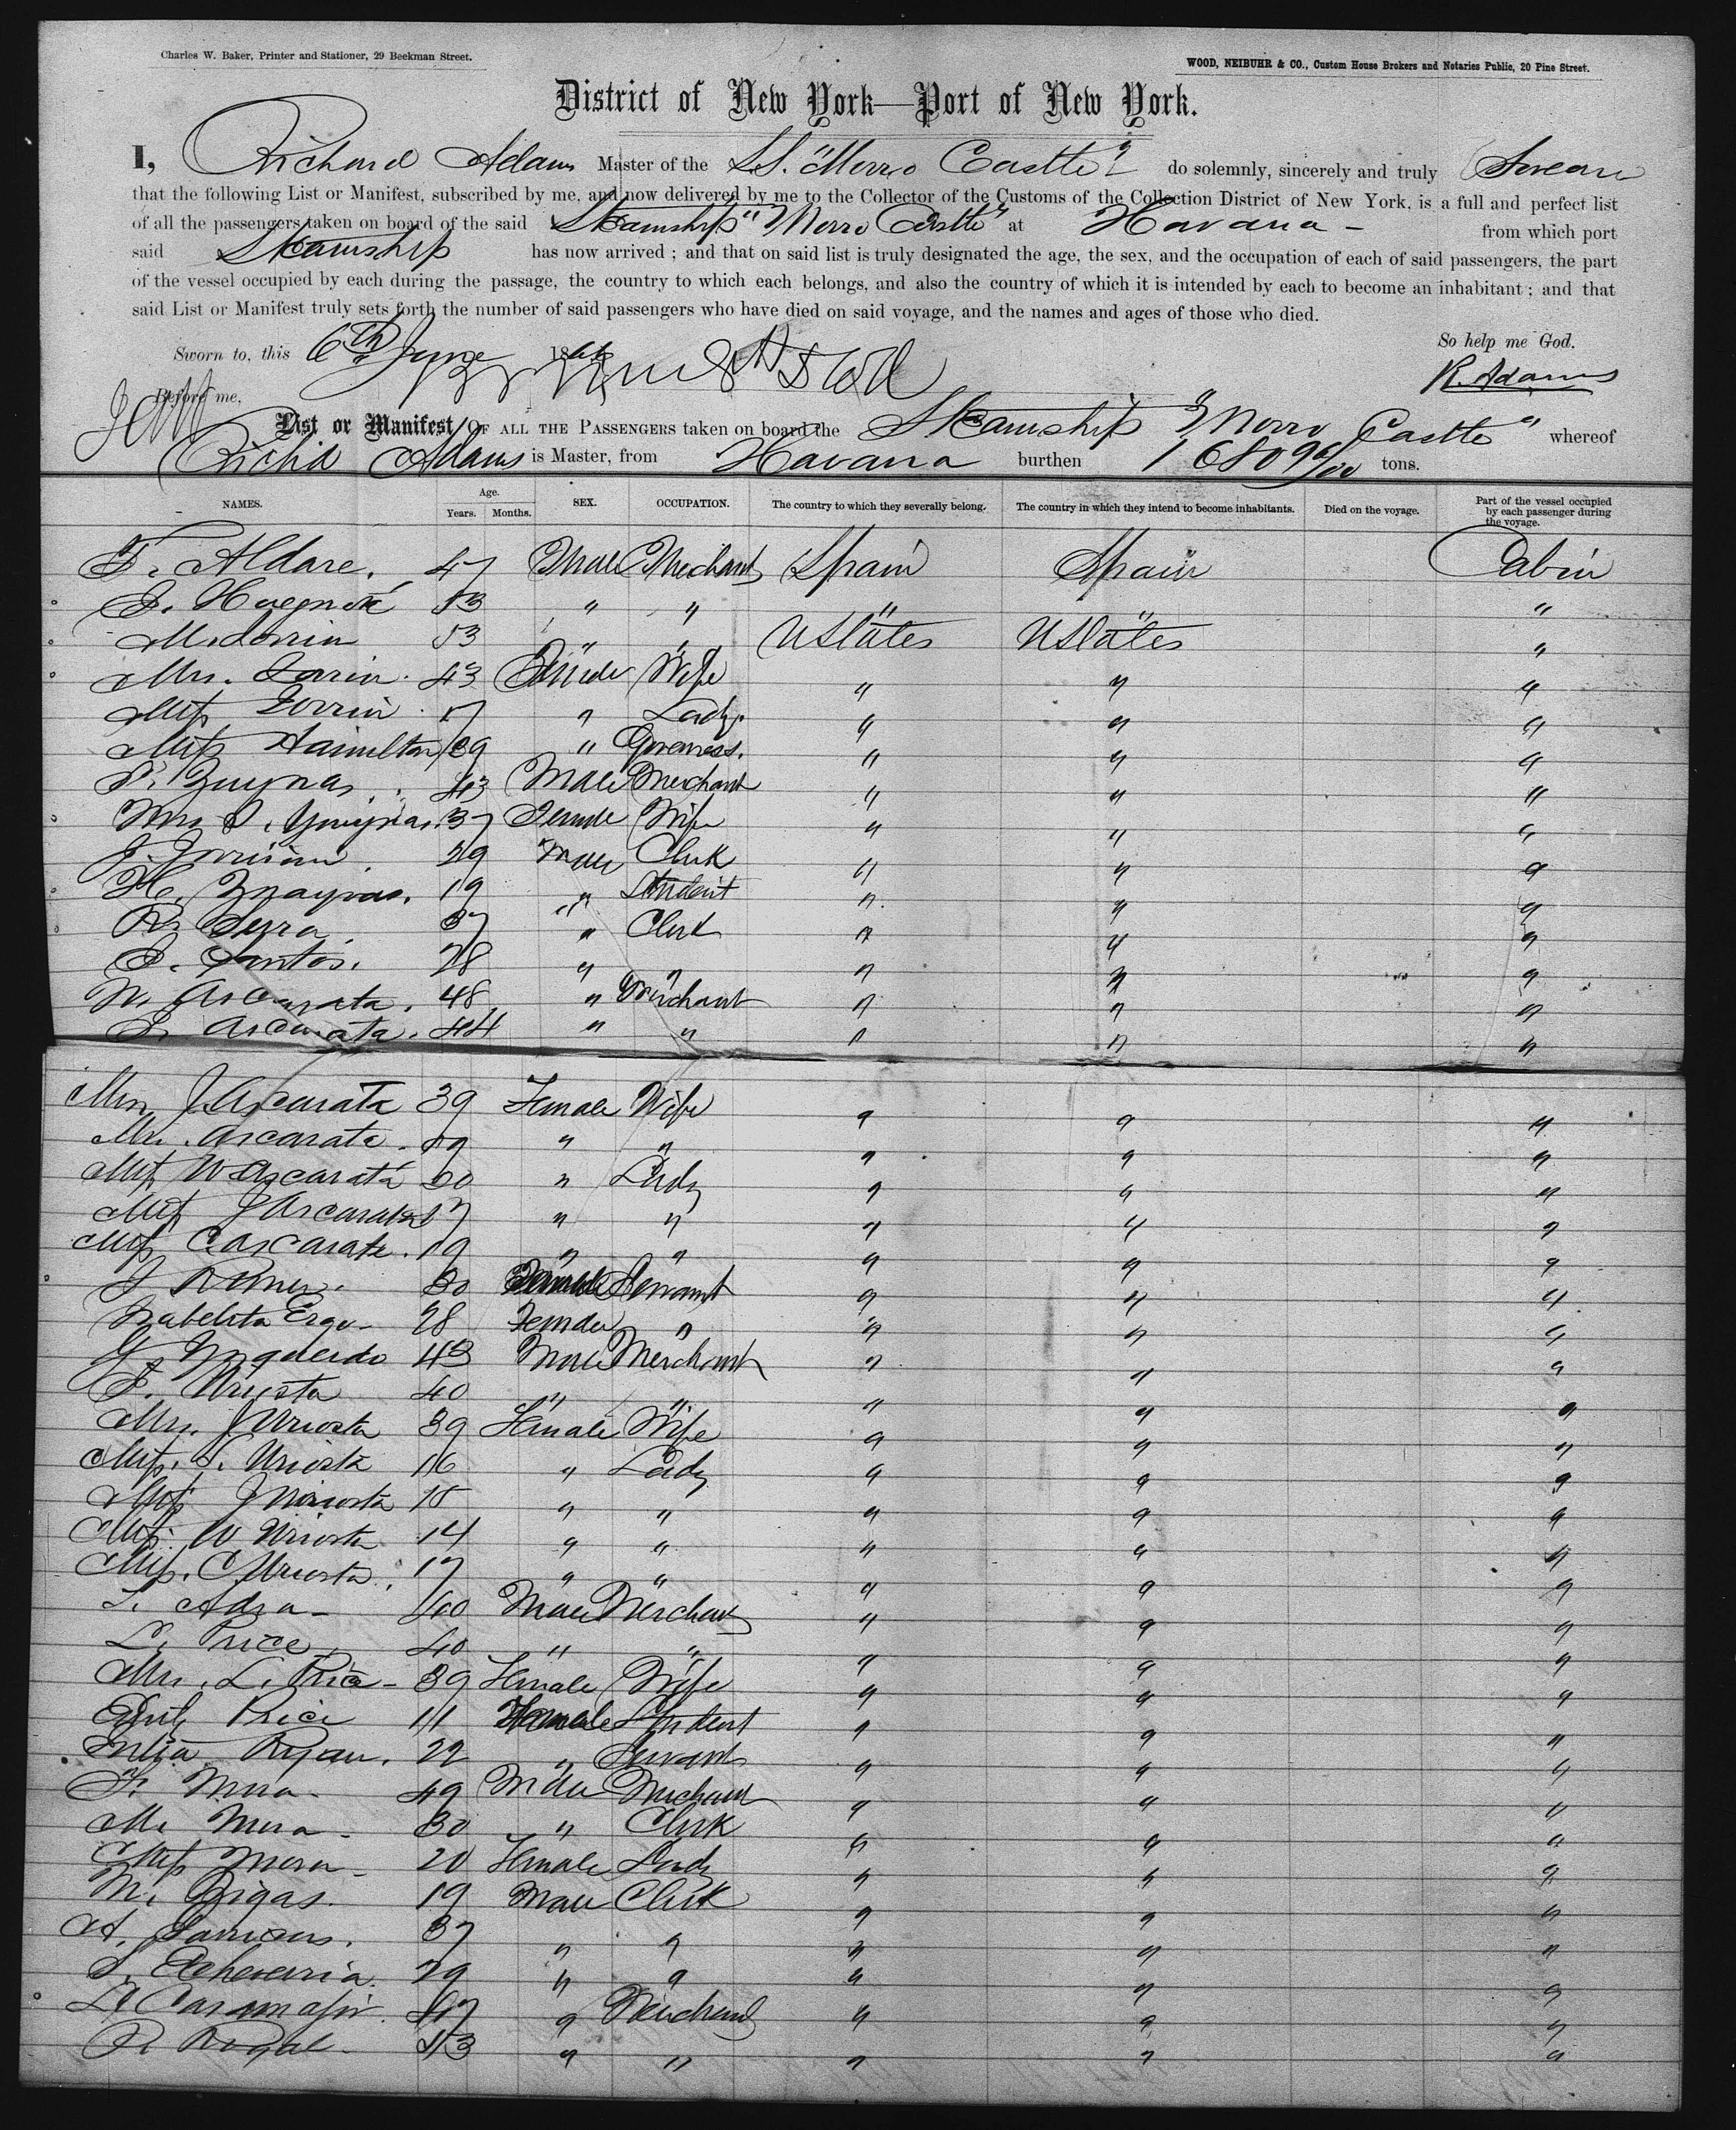 Charles W. Baker, Printer and Stationer, 29 Beekman Street.
WOOD, NEIBUHR & CO., Custom House Brokers and Notaries Public, 20 Pine Street.
District of New York—Port of New York.
I, Richard Adams Master of the S.S. "Morro Castle" do solemnly, sincerely and truly Swear
that the following List or Manifest, subscribed by me, and now delivered by me to the Collector of the Customs of the Collection District of New York, is a full and perfect list
of all the passengers taken on board of the said Steamship "Morro Castle" at Havana - from which port
said Steamship has now arrived ; and that on said list is truly designated the age, the sex, and the occupation of each of said passengers, the part
of the vessel occupied by each during the passage, the country to which each belongs, and also the country of which it is intended by each to become an inhabitant ; and that
said List or Manifest truly sets forth the number of said passengers who have died on said voyage, and the names and ages of those who died.
Sworn to, this 6th June 18
So help me God.
Before me,
R. Adams
List or Manifest OF ALL THE PASSENGERS taken on board the Steamship "Morro Castle" whereof
Richd Adams is Master, from Havana burthen 1680 96/100 tons.
NAMES. Age. Years. Months. SEX. OCCUPATION. The country to which they severally belong. The country in which they intend to become inhabitants. Died on the voyage. Part of the vessel occupied by each passenger during the voyage.
F. Aldare. 47 Male Merchant Spain Spain Cabin
53 " " " " "
53 " " U States U States "
Mrs. Lorrin. 43 Female Wife " " "
Miss Lorrin. 17 " Lady. " " "
Miss Hamilton 39 " Governess. " " "
43 Male Merchant " " "
Mrs 37 Female Wife " " "
29 Male Clerk " " "
19 " Student " " "
37 " Clerk " " "
S. Santos. 28 " " " " "
N. Ascarata. 48 " Merchant " " "
J. Ascarata. 44 " " " " "
Mrs J. Ascarata 39 Female Wife " " "
Mrs. Ascarata. " " " " "
Miss W Ascarata 20 " Lady " " "
Miss J Ascarata 17 " " " " "
Miss C Ascarate. 19 " " " " "
30 Female Servant " " "
Isabelita 28 Female " " " "
Y. Ysquierdo 43 Male Merchant " " "
J. Uriosta 40 " " " " "
Mrs. J Uriosta 39 Female Wife " " "
Miss. S. Uriosta 16 " Lady " " "
Miss J Uriosta 15 " " " " "
Miss. W Uriosta 14 " " " " "
Miss. C Uriosta. 17 " " " " "
Male Merchant " " "
L. Price. 40 " " " " "
Mrs. L. Price - 39 Female Wife " " "
Price 11 Female Student " " "
Julia Ryan. 22 " Servant " " "
F. Mora. 49 Male Merchant " " "
M. Mora - 30 " Clerk " " "
Miss Mora - 20 Female Lady " " "
M. Bigas. 19 Male Clerk " " "
37 " " " " "
S. Echeverria. 29 " " " " "
47 " Merchant " " "
43 " " " " "